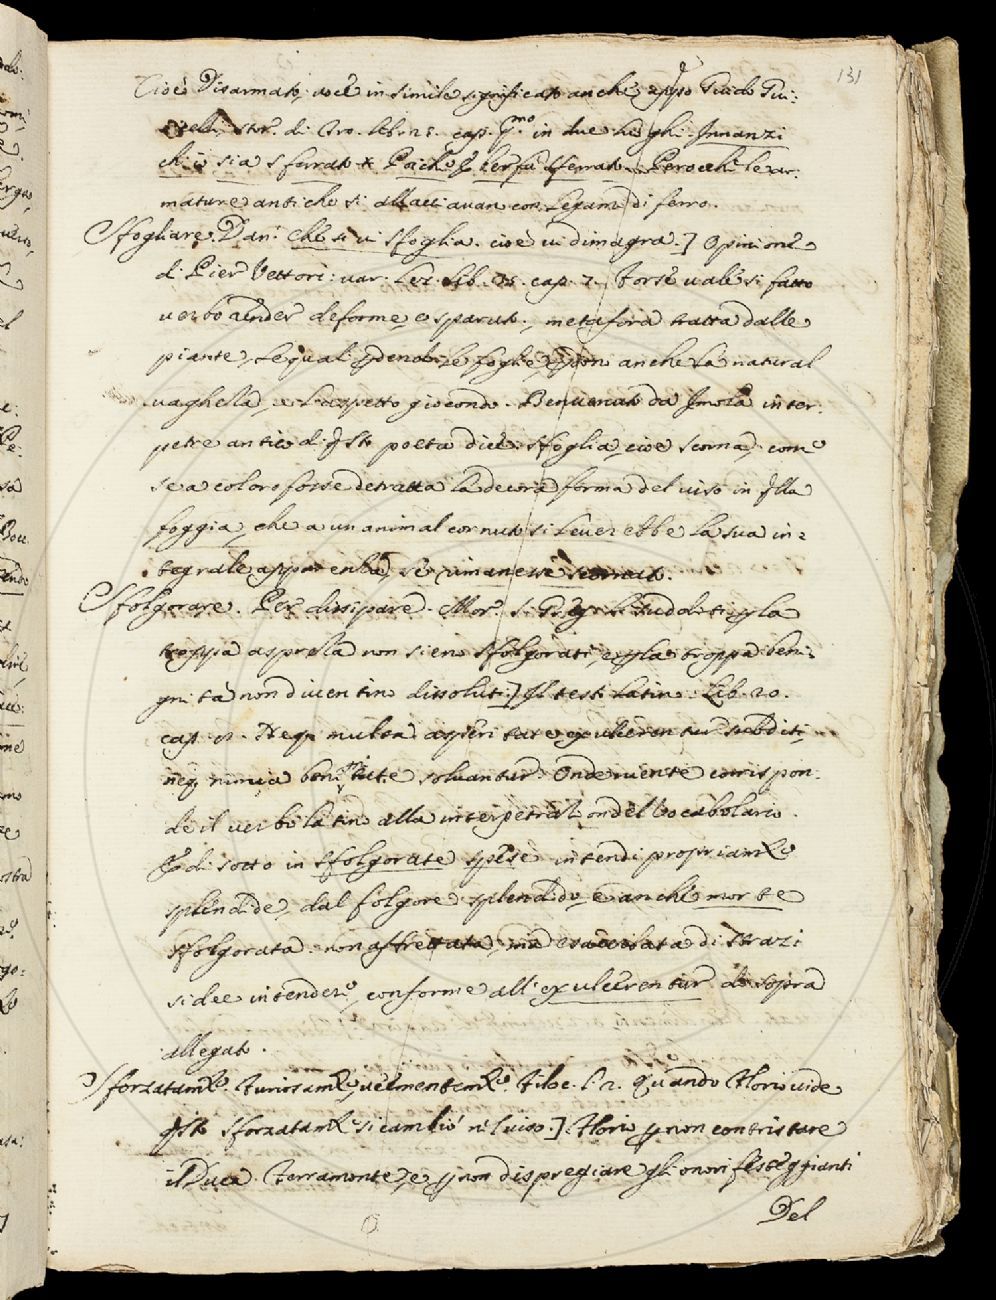 131
Cioè Disarmato; voce in simile significato anche appo Guido Giu:
dice Str. di Tro. lib. 25. cap. pmo in due luoghi. Innanzi
ch'io sia sferrato & Poiche fu sferrato. Perocche le ar:
mature antiche si allacciavan con legami di ferro.
Sfogliare. Dan. che si vi sfoglia. cioè vi dimagra.] Opinione
di Pier Vettori: var. Lez. Lib. 35. cap. 7. Forse vale si fatto
verbo render deforme, e sparuto, metafora tratta dalle
piante, le quali pdendo le foglie, pdono anche la natural
vaghezza, e l'aspetto giocondo. Benvenuto da Imola inter:
petre antico di qsto poeta dice: sfoglia, cioè scorna, come
se a coloro fosse detratta la decora forma del viso in qlla
foggia, che a un animal cornuto si leverebbe la sua in:
tegrale apparenza, se rimanesse scornato.
Sfolgorare. Per dissipare. Mor. S. Greg. li sudditi p la
troppa asprezza non sieno sfolgorati, e p la troppa beni:
gnità non diventino dissoluti.] Il testo Latino. Lib. 20.
cap. Neq. multa asperitate exulcerentur subditi,
neq. nimia benignitate solvantur. Onde niente corrispon:
de il verbo latino alla interpetraz.ⁿ del Vocabolario.
E di sotto in sfolgorate spese intendi propriam.te
splendide, dal folgore splendido, e anche morte
sfolgorata non affrettata, ma esulcerata di strazi
si dee intendere, conforme all'exulcerentur di sopra
allegato.
Sforzatam.te. Furiosam.te, veementem.te. Filoc. l. 2. Quando Florio vide
qsto sforzatam.te si cambiò nel viso.] Florio p non contristare
il Duca Ferramonte, e p non dispregiare gli onori festeggianti
Del